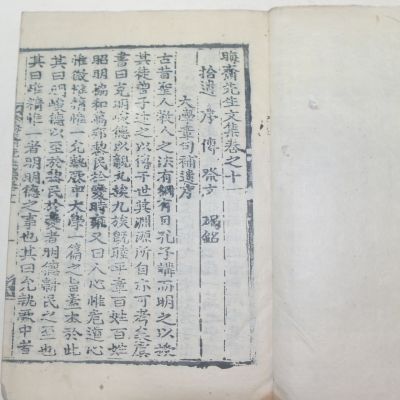 晦齋先生文集卷之十一
拾遺 序 傳 跋文 碣銘
大學章句補遺序
古昔聖人教人之法有綱有目孔子講而明之以授
其徒曾子述之以傳于世其淵源所自亦可考矣虞
書曰克明峻德以親九族九族旣睦平章百姓百姓
昭明協和萬邦黎民於變時雍又曰人心惟危道心
惟微惟精惟一允執厥中大學一篇之旨蓋本於此
其曰明峻德以至於黎民於變者明德新民之至也
其曰惟精惟一者明明德之事也其曰允執厥中者